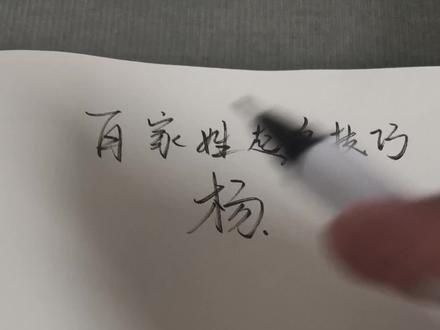 百家姓起名技巧
杨.